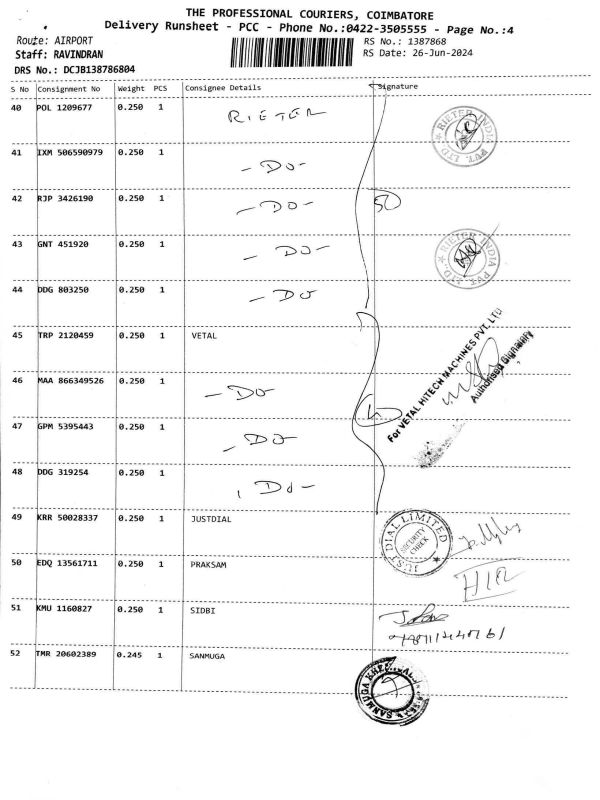 THE PROFESSIONAL COURIERS, COIMBATORE
Delivery Runsheet - PCC - Phone No.:0422-3505555 - Page No.:4
Route: AIRPORT RS No.: 1387868
Staff: RAVINDRAN RS Date: 26-Jun-2024
DRS No.: DCJB138786804
S No Consignment No Weight PCS Consignee Details Signature
40 POL 1209677 0.250 1 RIETER
RIETER INDIA PVT. LTD.
41 IXM 506590979 0.250 1 - DO -
42 RJP 3426190 0.250 1 - DO - 5
43 GNT 451920 0.250 1 - DO -
RIETER INDIA PVT. LTD.
44 DDG 803250 0.250 1 - DO
45 TRP 2120459 0.250 1 VETAL
For VETAL HITECH MACHINES PVT. LTD
Authorised Signatory
46 MAA 866349526 0.250 1 - DO
47 GPM 5395443 0.250 1 - DO
48 DDG 319254 0.250 1 DO -
49 KRR 50028337 0.250 1 JUSTDIAL
JUST DIAL LIMITED
SECURITY CHECK
50 EDQ 13561711 0.250 1 PRAKSAM
51 KMU 1160827 0.250 1 SIDBI
52 TMR 20602389 0.245 1 SANMUGA
SANMUGA